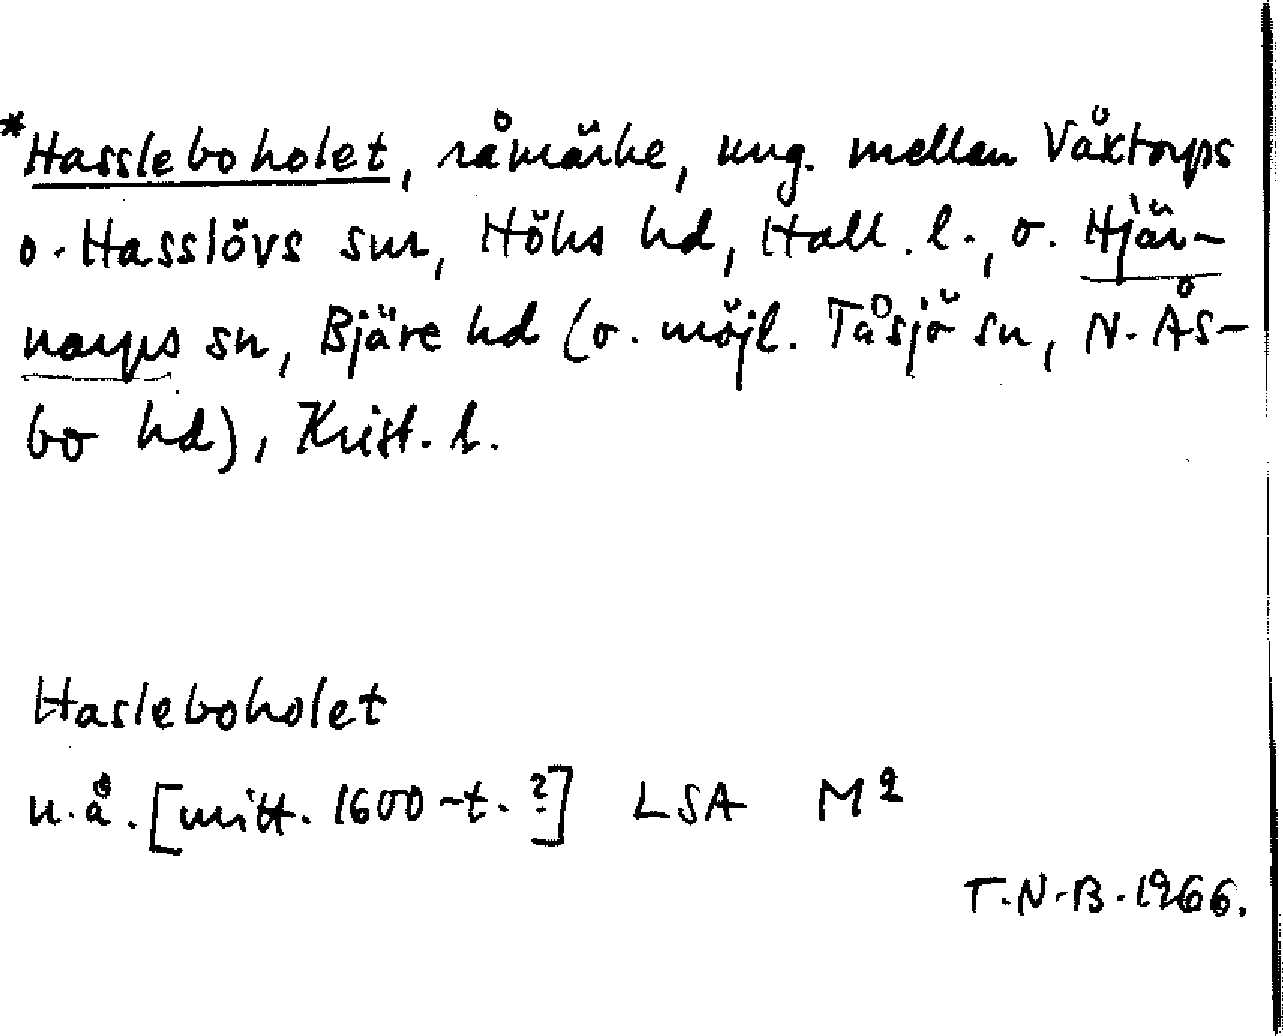 *Hassleboholet, råmärke, ung. mellan Våxtorps
o. Hasslövs snr, Höks hd, Hall. l., o. Hjär-
narps sn, Bjäre hd (o. möjl. Tåsjö sn, N. Ås-
bo hd), Krist. l.
Hasleboholet
u.å. [mitt. 1600-t. ?] LSA M2
T.N.B. 1966.